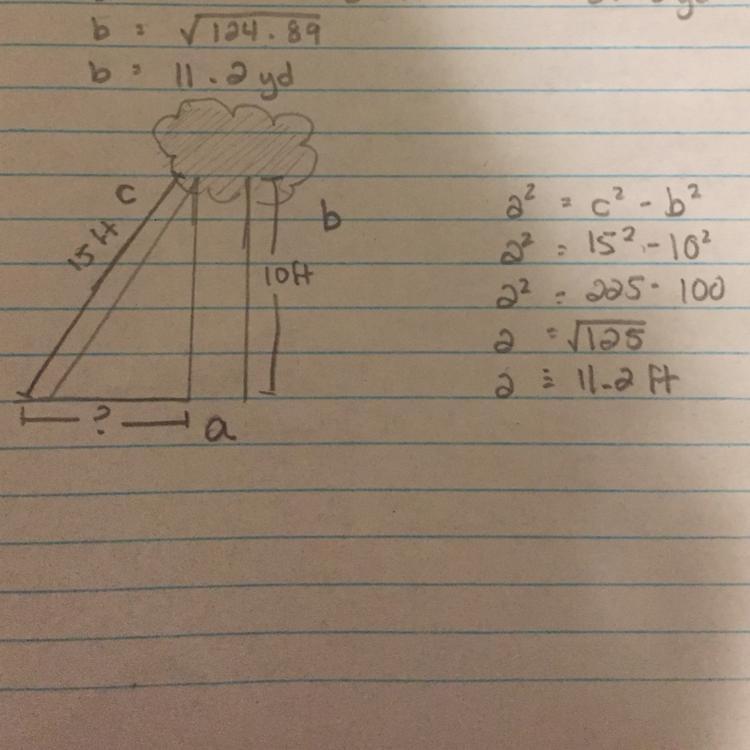 b = √124.89
b = 11.2 yd
c
15 ft
b
10ft
? a
a² = c² - b²
a² = 15² - 10²
a² = 225 - 100
a = √125
a = 11.2 ft